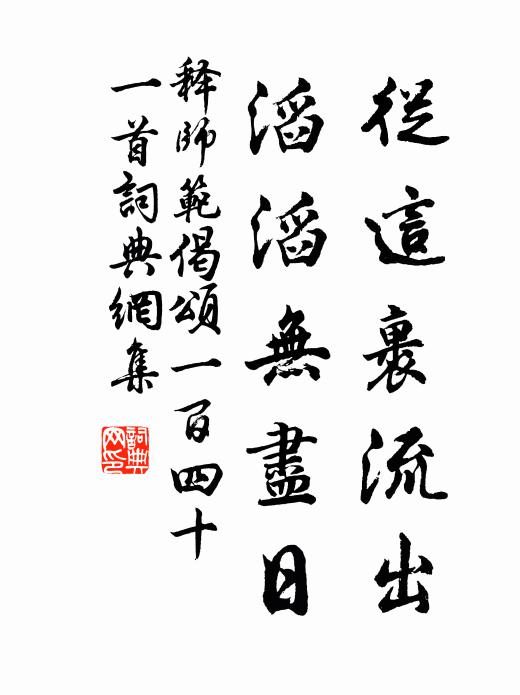 從這裹流出
滔滔無盡日
释師範偈頌一百四十
一首詞典網集
詞典
网印